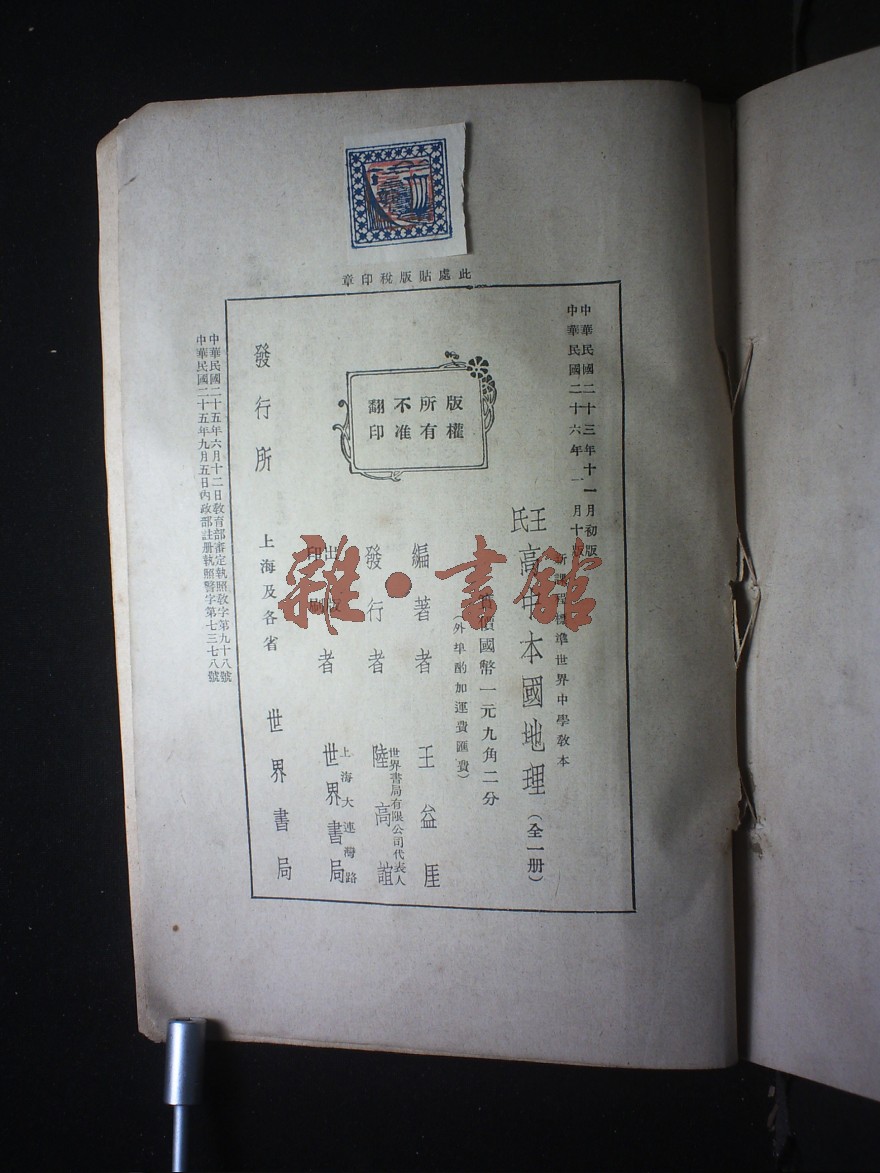 此處貼版稅印章
中華民國二十三年十一月初版
中華民國二十六年一月十版
新課程標準世界中學教本
王氏高中本國地理(全一册)
價國幣一元九角二分
(外埠酌加運費匯費)
版權
所有
不准
翻印
編著者 王益厓
發行者 世界書局有限公司代表人 陸高誼
出版印刷者 上海大連灣路 世界書局
發行所 上海及各省 世界書局
中華民國二十五年六月十二日教育部審定執照教字第九十八號
中華民國二十五年九月五日內政部註册執照警字第七三七八號
雜·書館